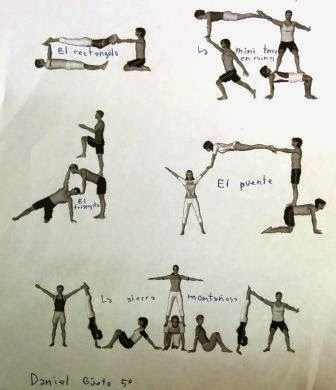 El rectangulo
La mini torre
en ruinas
El
triangulo
El puente
La sierra montañosa
Daniel Güeto 5º